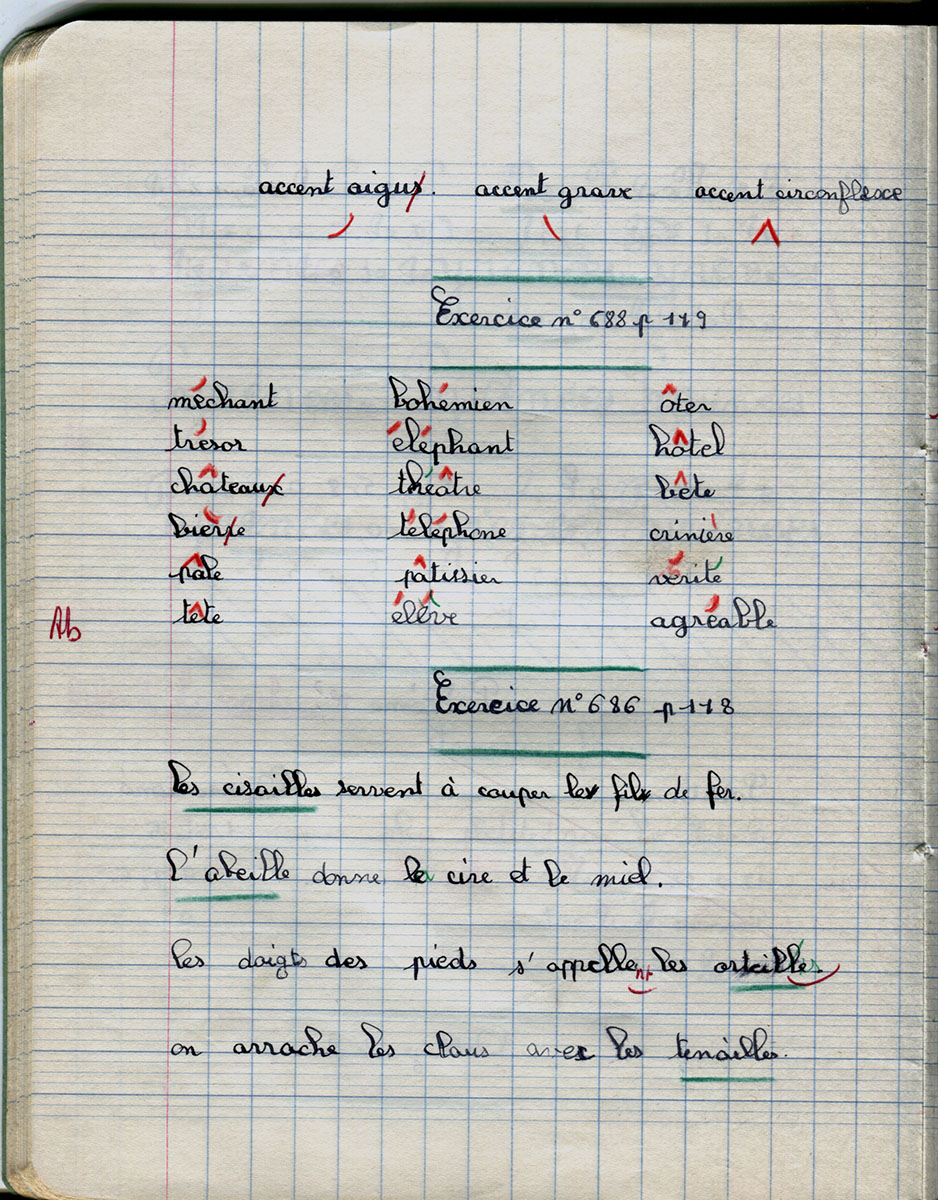 accent aigux. accent grave accent circonflexe
Exercice n° 688 p 179
méchant bohémien ôter
trésor éléphant hôtel
châteaux théâtre bête
bière téléphone crinière
pâle pâtissier vérité
tête élève agréable
Ab
Exercice n° 686 p 178
les cisailles servent à couper les fils de fer.
l'abeille donne la cire et le miel.
les doigts des pieds s'appellent les orteilles.
on arrache les clous avec les tenailles.